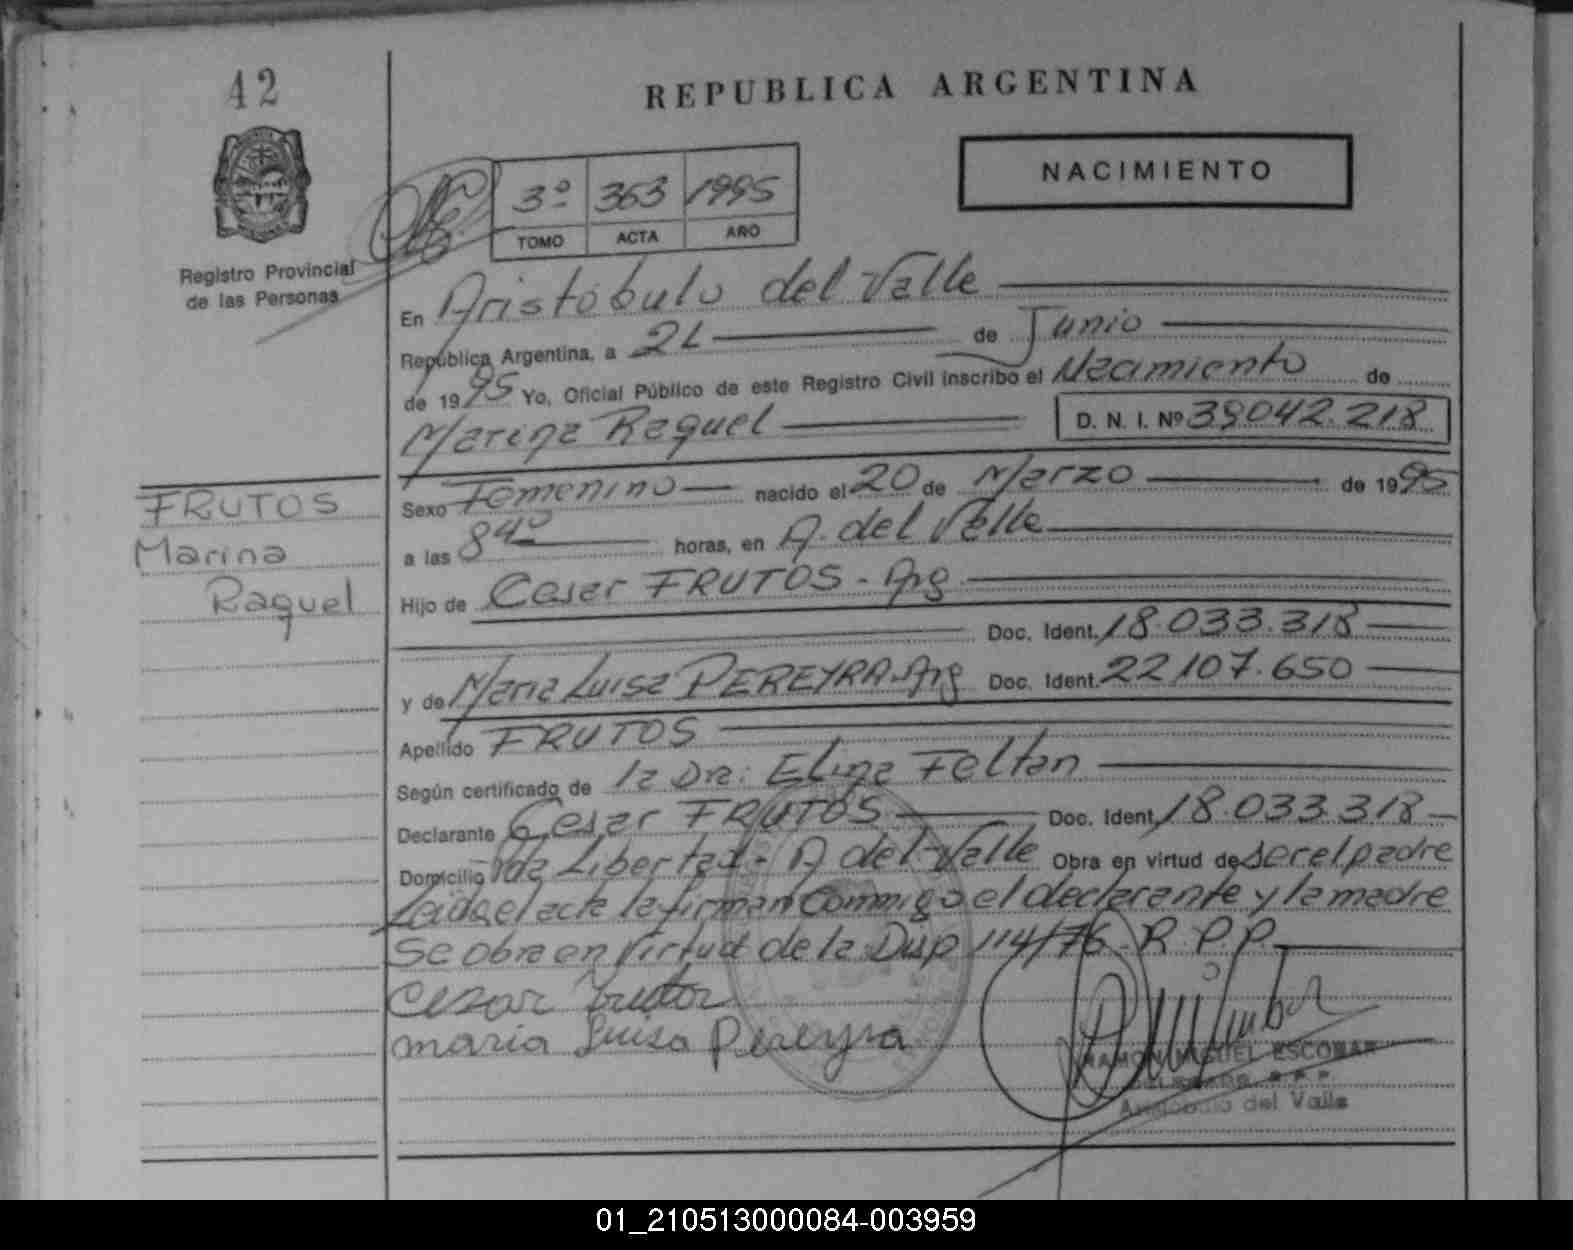 42
REPUBLICA ARGENTINA
NACIMIENTO
3º 363 1995
TOMO ACTA AÑO
Registro Provincial
de las Personas
En Aristóbulo del Valle
República Argentina, a 21 de Junio
de 1995 Yo, Oficial Público de este Registro Civil inscribo el Nacimiento de
Marina Raquel D. N. I. Nº 39.042.218
Sexo Femenino nacido el 20 de Marzo de 1995
FRUTOS
Marina
Raquel
a las 840 horas, en A. del Valle
Hijo de Cesar FRUTOS - Arg
Doc. Ident. 18.033.318
y de Maria Luisa PEREYRA - Arg Doc. Ident. 22.107.650
Apellido FRUTOS
Según certificado de la Dra: Elina Feltan
Declarante Cesar FRUTOS Doc. Ident. 18.033.318
Domicilio Libertad - A del Valle Obra en virtud de ser el padre
Leida el acta la firman Conmigo el declarante y la madre
Se obra en virtud de la Disp 114/76 - R.P.P.
Cezar
maria Luisa Pereyra
RAMON MIGUEL ESCOBAR
Aristóbulo del Valle
01_210513000084-003959